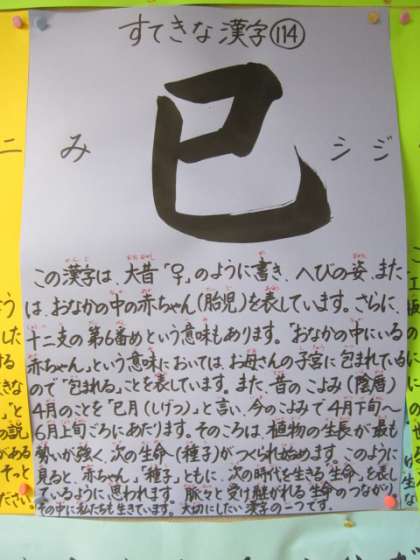 すてきな漢字114
巳
み
シジ
この漢字は、大昔「」のように書き、へびの姿、また
は、おなかの中の赤ちゃん(胎児)を表しています。さらに、
十二支の第6番めという意味もあります。「おなかの中にいる
赤ちゃん」という意味においては、お母さんの子宮に包まれている
ので「包まれる」ことを表しています。また、昔のこよみ(陰暦)
4月のことを「巳月(しげつ)」と言い、今のこよみで4月下旬〜
6月上旬ごろにあたります。そのころは、植物の生長が最も
勢いが強く、次の生命(種子)がつくられ始めます。このように
見ると、「赤ちゃん」「種子」ともに、次の時代を生きる「生命」を表し
ているように思われます。脈々と受け継がれる生命のつながり。
その中に私たちも生きています。大切にしたい漢字の一つです。